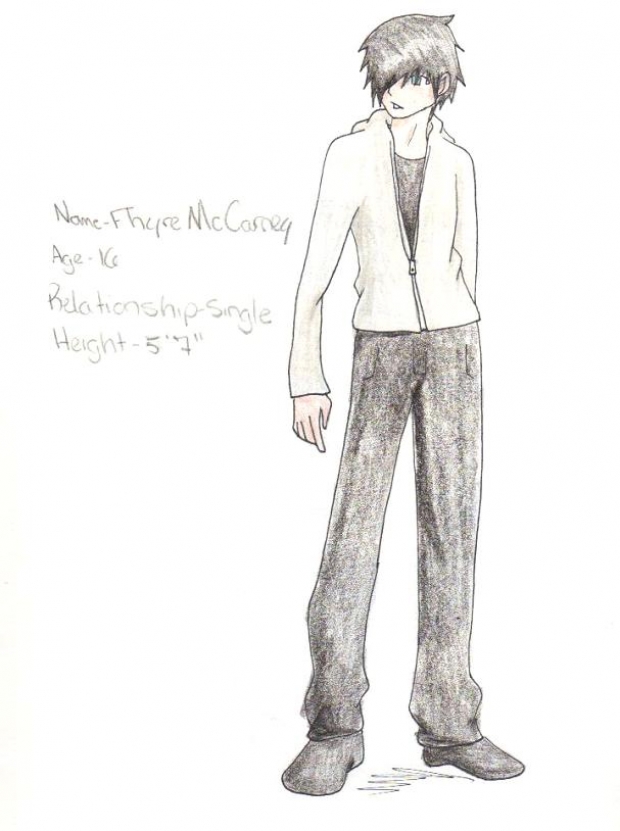 Name-Fhyre McCarney
Age-16
Relationship-Single
Height-5'7"